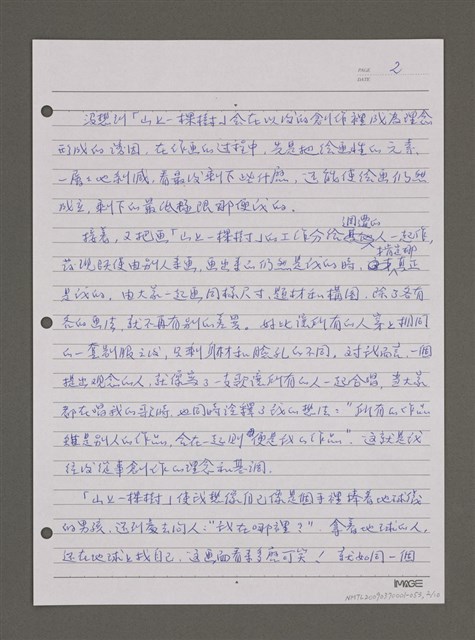 PAGE 2
DATE
沒想到「山上一棵樹」會在以後的創作裡成為理念
形成的誘因，在作画的过程中，先是把绘画性的元素
一層々地剥减，看最後剩下些什麽，还能使绘画仍然
成立，剩下的最低極限那便是我的。
週遭的
接著，又把画「山上一棵樹」的工作分给人一起作，
指边哪
發現既使由别人来画，画出来仍然是我的時，真正
是我的，由大家一起画同樣尺寸，題材和構图，除了各有
各的画法，就不再有别的差異。好比讓所有的人穿上相同
的一套制服之後，只剩身材和臉孔的不同。对我而言，一個
提出观念的人，就像寫了一支歌讓所有的人一起合唱，當大家
都在唱我的歌時，也同時诠釋了我的想法："所有的作品
雖是别人的作品，合在一起则便是我的作品"。这就是我
往後從事創作的理念和基调。
「山上一棵樹」使我想像自己像是個手裡捧着地球儀
的男孩，逢到處去问人："我在哪裡？"。拿着地球的人，
还在地球上找自己，这画面看来多麼可笑！就如同一個
IMAGE
NMTL20090370001-053, 2/10